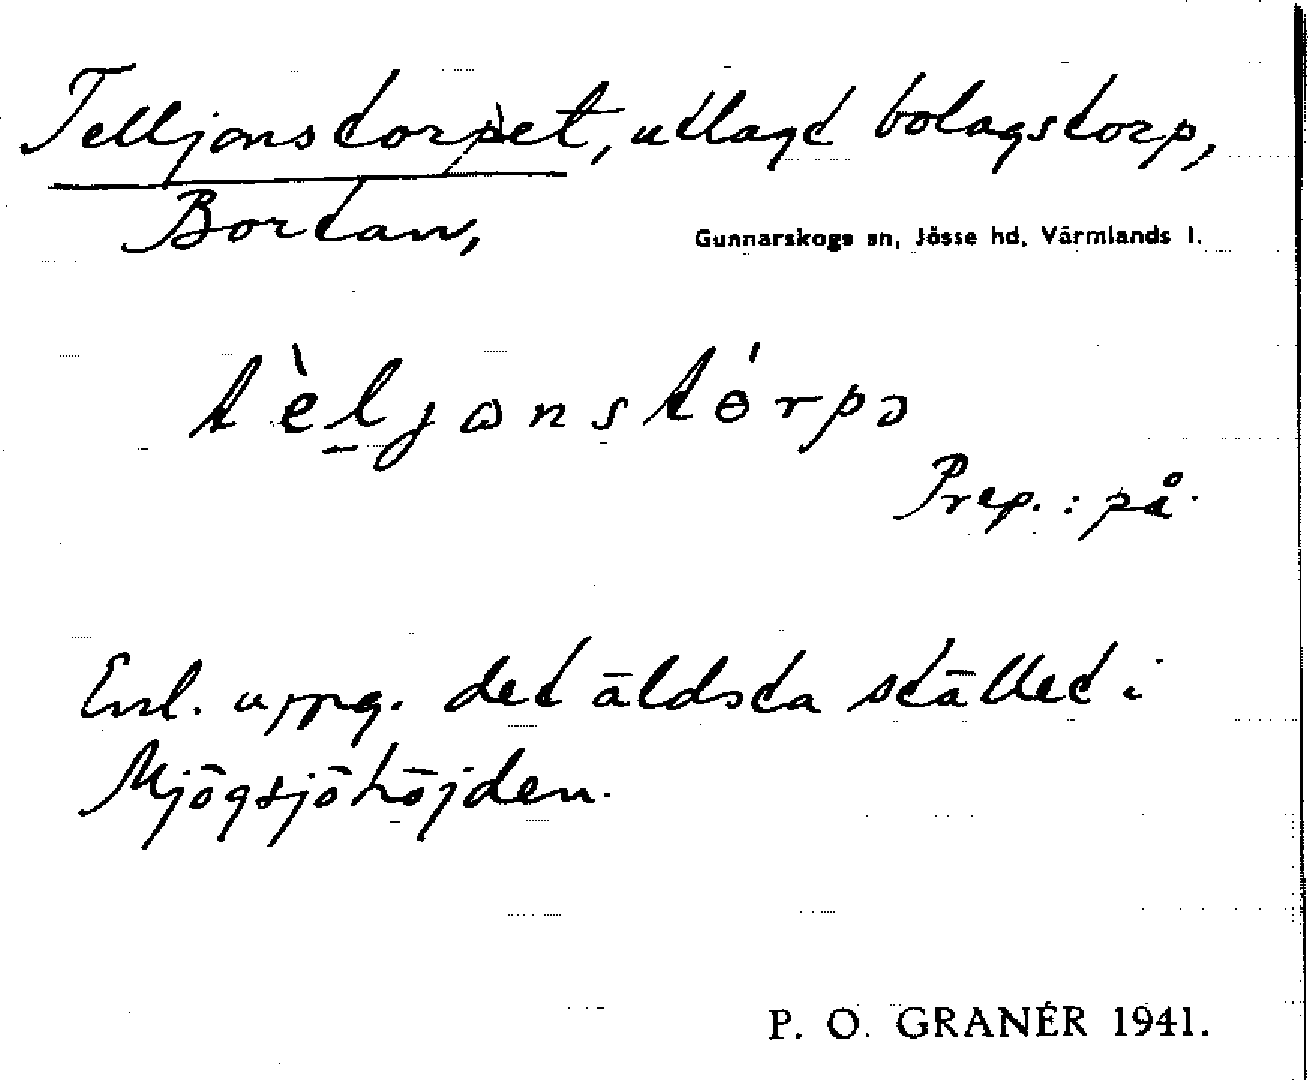 Telljonstorpet, utlagt bolagstorp,
Bortan,
Gunnarskogs sn, Jösse hd, Värmlands l.
tèljɷnstɵ́rpə
Prep. : på.
Enl. uppg. det äldsta stället i
Mjögsjöhöjden.
P. O. GRANÉR 1941.